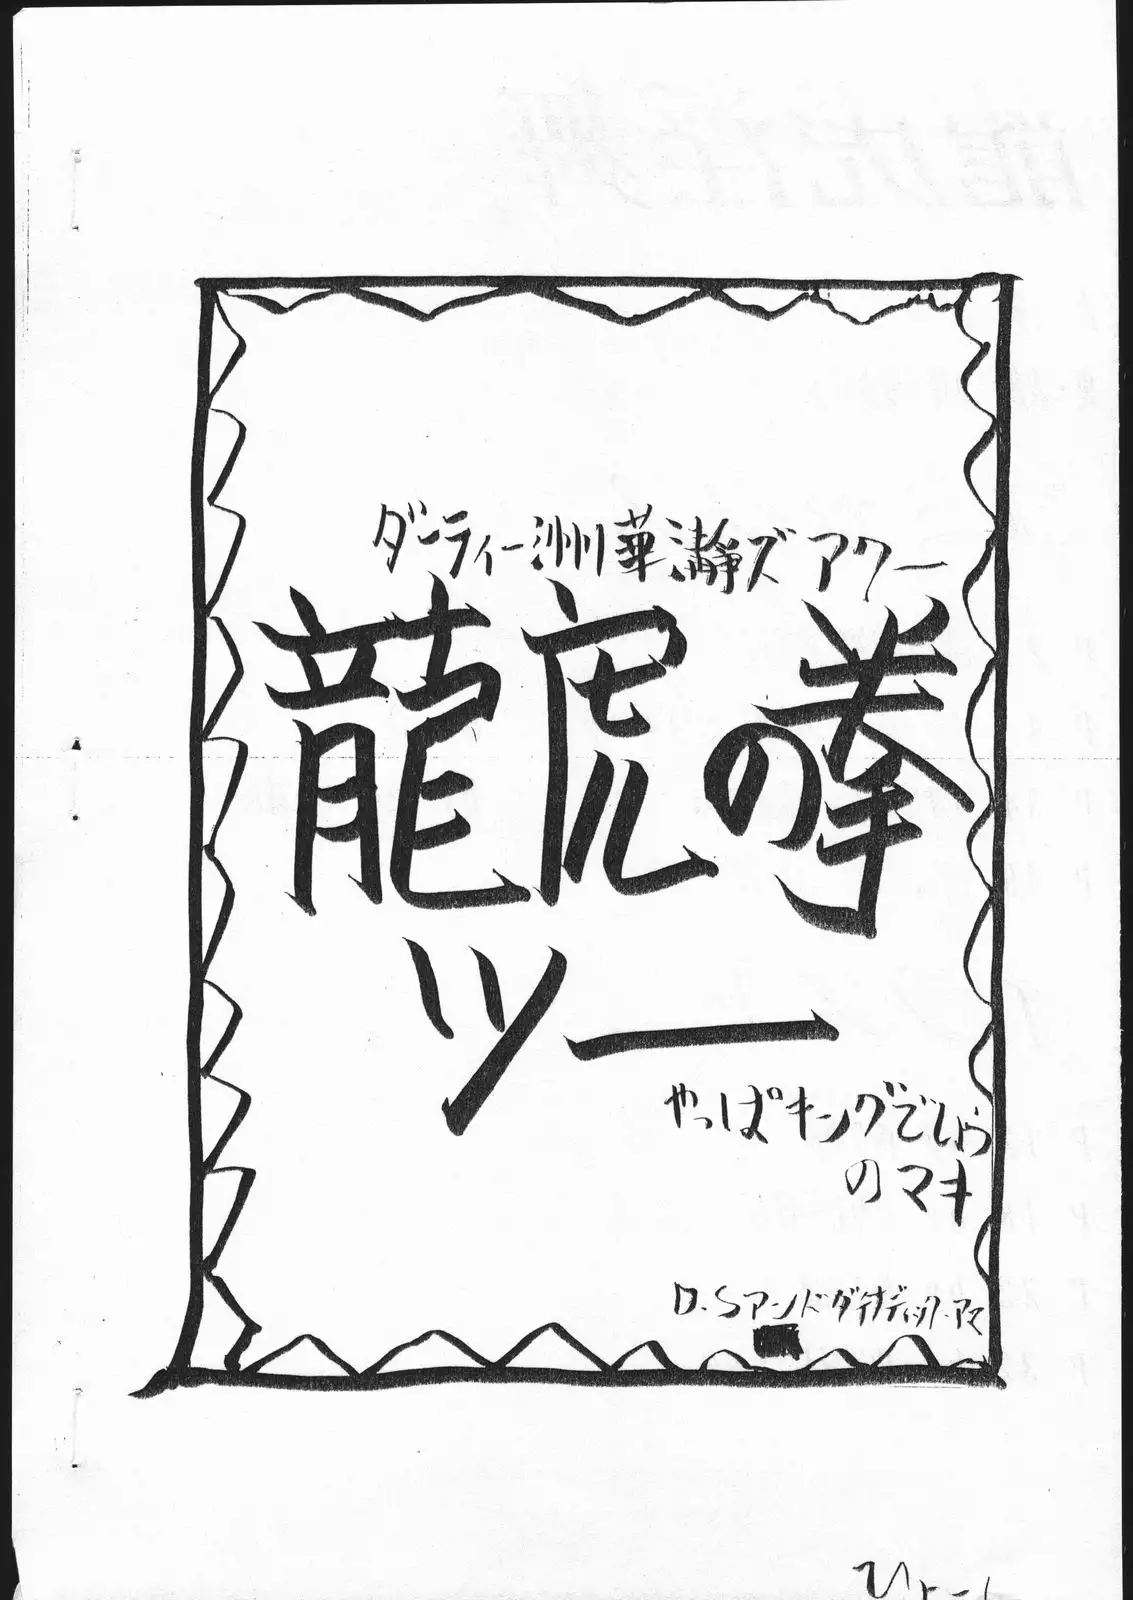 ダーティー洲川華瀞ズアワー
龍虎の拳
ツー
やっぱキングでしょう
のマキ
D.Sアンドダイナディック.アマ
ひょーん